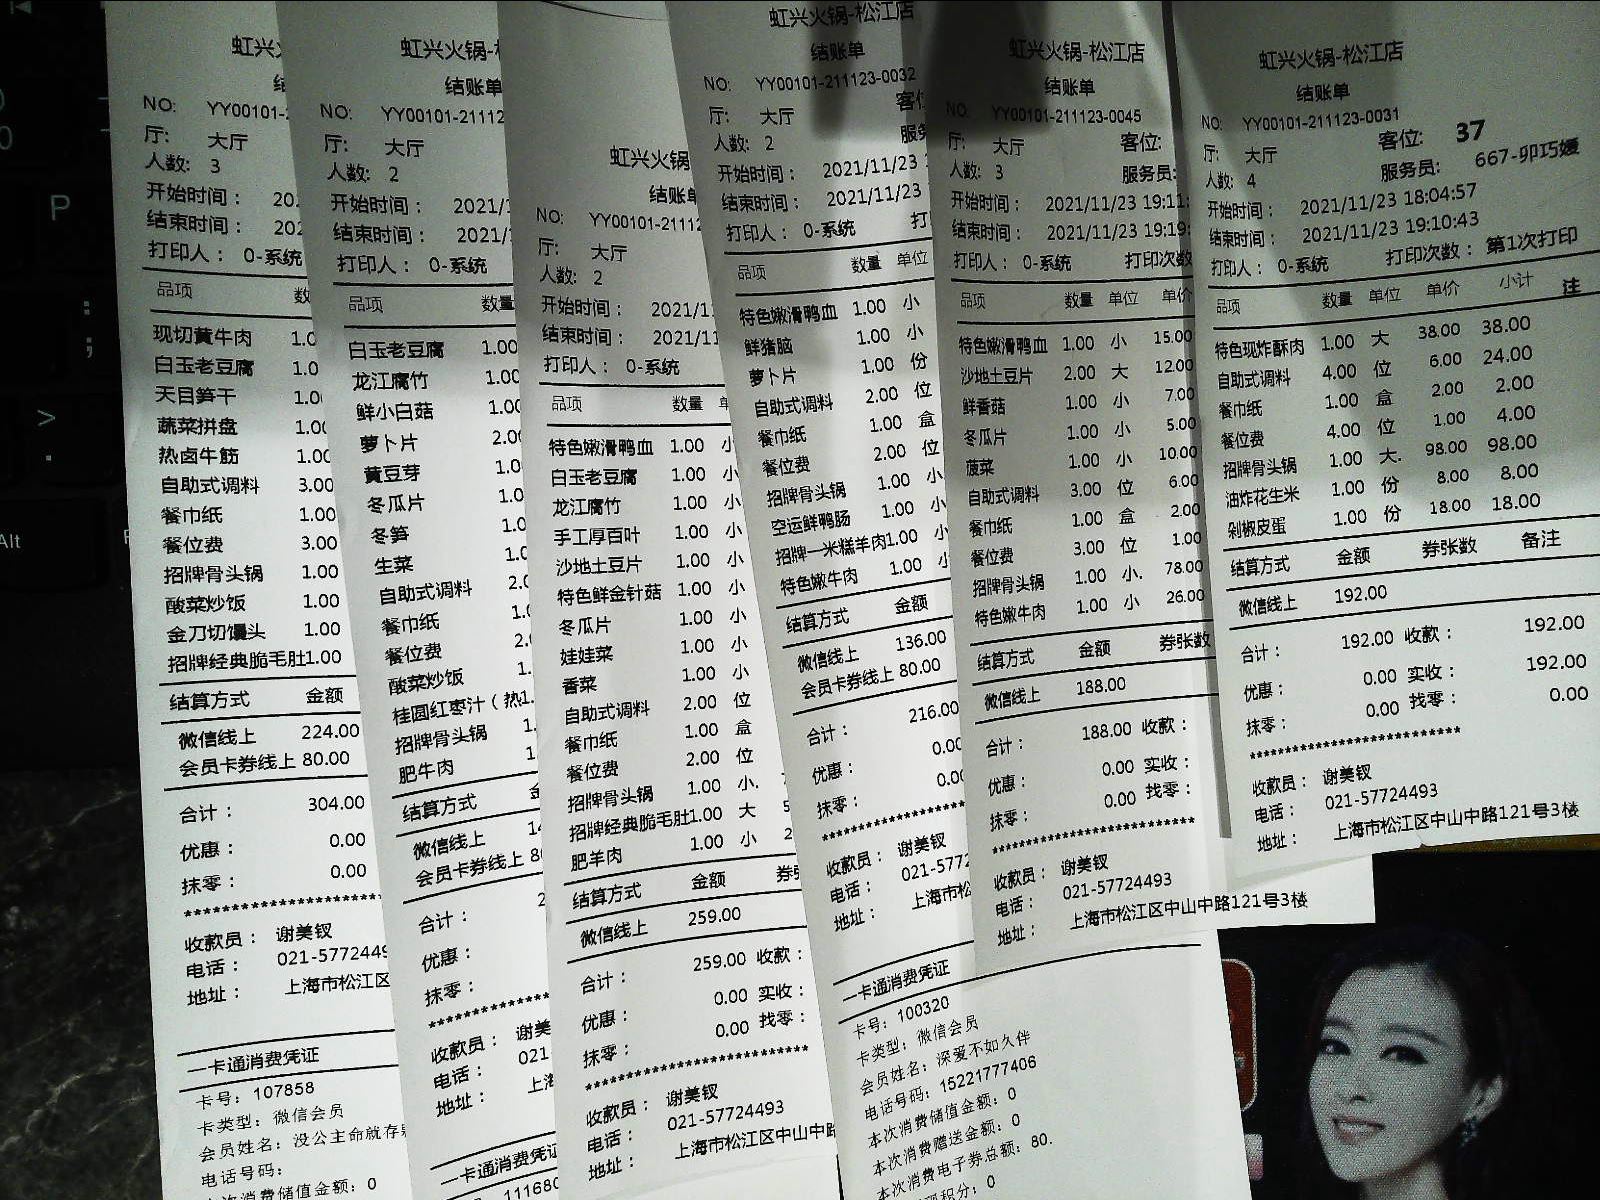 虹兴
NO: YY00101-2
厅: 大厅
人数: 3
开始时间: 202
结束时间: 202
打印人: 0-系统
品项 数
现切黄牛肉 1.0
白玉老豆腐 1.0
天目笋干 1.0
蔬菜拼盘 1.00
热卤牛筋 1.00
自助式调料 3.00
餐巾纸 1.00
餐位费 3.00
招牌骨头锅 1.00
酸菜炒饭 1.00
金刀切馒头 1.00
招牌经典脆毛肚1.00
结算方式 金额
微信线上 224.00
会员卡券线上 80.00
合计: 304.00
优惠: 0.00
抹零: 0.00
******************************
收款员: 谢美钗
电话: 021-5772449
地址: 上海市松江区
一卡通消费凭证
卡号: 107858
卡类型: 微信会员
会员姓名: 没公主命就存
电话号码:
本次消费储值金额: 0
虹兴火锅-
结账单
NO: YY00101-2112
厅: 大厅
人数: 2
开始时间: 2021/1
结束时间: 2021/
打印人: 0-系统
品项 数量
白玉老豆腐 1.00
龙江腐竹 1.00
鲜小白菇 1.00
萝卜片 2.00
黄豆芽 1.0
冬瓜片 1.0
冬笋 1.0
生菜 1.0
自助式调料 2.0
餐巾纸 1.0
餐位费 2.
酸菜炒饭 1.
桂圆红枣汁(热1.
招牌骨头锅 1.
肥牛肉 1
结算方式 金
微信线上 14
会员卡券线上 80
合计: 2
优惠:
抹零:
******************
收款员: 谢美
电话: 021
地址: 上海
一卡通消费凭证
111680
虹兴火锅
结账单
NO: YY00101-2112
厅: 大厅
人数: 2
开始时间: 2021/11
结束时间: 2021/11
打印人: 0-系统
品项 数量 单
特色嫩滑鸭血 1.00 小
白玉老豆腐 1.00 小
龙江腐竹 1.00 小
手工厚百叶 1.00 小
沙地土豆片 1.00 小
特色鲜金针菇 1.00 小
冬瓜片 1.00 小
娃娃菜 1.00 小
香菜 1.00 小
自助式调料 2.00 位
餐巾纸 1.00 盒
餐位费 2.00 位
招牌骨头锅 1.00 小.
招牌经典脆毛肚1.00 大 5
肥羊肉 1.00 小 2
结算方式 金额 券
微信线上 259.00
合计: 259.00 收款:
优惠: 0.00 实收:
抹零: 0.00 找零:
******************************
收款员: 谢美钗
电话: 021-57724493
地址: 上海市松江区中山中路
虹兴火锅-松江店
结账单
NO: YY00101-211123-0032
厅: 大厅 客位
人数: 2 服务
开始时间: 2021/11/23
结束时间: 2021/11/23
打印人: 0-系统 打
品项 数量 单位
特色嫩滑鸭血 1.00 小
鲜猪脑 1.00 小
萝卜片 1.00 份
自助式调料 2.00 位
餐巾纸 1.00 盒
餐位费 2.00 位
招牌骨头锅 1.00 小
空运鲜鸭肠 1.00 小
招牌一米糕羊肉1.00 小
特色嫩牛肉 1.00 小
结算方式 金额
微信线上 136.00
会员卡券线上 80.00
合计: 216.00
优惠: 0.00
抹零: 0.00
**********************
收款员: 谢美钗
电话: 021-5772
地址: 上海市松
一卡通消费凭证
卡号: 100320
卡类型: 微信会员
会员姓名: 深爱不如久伴
电话号码: 15221777406
本次消费储值金额: 0
本次消费赠送金额: 0
本次消费电子券总额: 80.
积分: 0
虹兴火锅-松江店
结账单
NO: YY00101-211123-0045
厅: 大厅 客位:
人数: 3 服务员:
开始时间: 2021/11/23 19:11:
结束时间: 2021/11/23 19:19:
打印人: 0-系统 打印次数
品项 数量 单位 单价
特色嫩滑鸭血 1.00 小 15.00
沙地土豆片 2.00 大 12.00
鲜香菇 1.00 小 7.00
冬瓜片 1.00 小 5.00
菠菜 1.00 小 10.00
自助式调料 3.00 位 6.00
餐巾纸 1.00 盒 2.00
餐位费 3.00 位 1.00
招牌骨头锅 1.00 小. 78.00
特色嫩牛肉 1.00 小 26.00
结算方式 金额 券张数
微信线上 188.00
合计: 188.00 收款:
优惠: 0.00 实收:
抹零: 0.00 找零:
******************************
收款员: 谢美钗
电话: 021-57724493
地址: 上海市松江区中山中路121号3楼
虹兴火锅-松江店
结账单
NO: YY00101-211123-0031
厅: 大厅 客位: 37
人数: 4 服务员: 667-卯巧媛
开始时间: 2021/11/23 18:04:57
结束时间: 2021/11/23 19:10:43
打印人: 0-系统 打印次数: 第1次打印
品项 数量 单位 单价 小计 注
特色现炸酥肉 1.00 大 38.00 38.00
自助式调料 4.00 位 6.00 24.00
餐巾纸 1.00 盒 2.00 2.00
餐位费 4.00 位 1.00 4.00
招牌骨头锅 1.00 大. 98.00 98.00
油炸花生米 1.00 份 8.00 8.00
剁椒皮蛋 1.00 份 18.00 18.00
结算方式 金额 券张数 备注
微信线上 192.00
合计: 192.00 收款: 192.00
优惠: 0.00 实收: 192.00
抹零: 0.00 找零: 0.00
******************************
收款员: 谢美钗
电话: 021-57724493
地址: 上海市松江区中山中路121号3楼
P
:
;
>
.
Alt